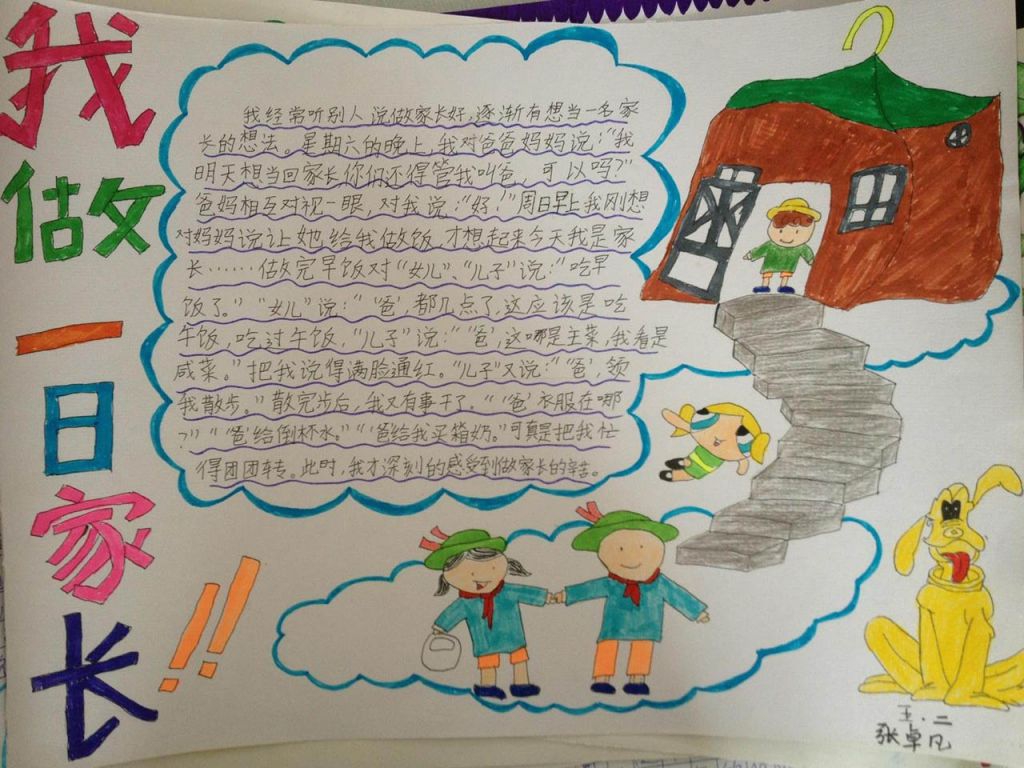 我做一日家长!!
我经常听别人说做家长好，逐渐有想当一名家
长的想法。星期六的晚上，我对爸爸妈妈说：“我
明天想当回家长你们还得管我叫爸，可以吗？”
爸妈相互对视一眼，对我说：“好！”周日早上我刚想
对妈妈说让她给我做饭，才想起来今天我是家
长……估做完早饭对“女儿”、“儿子”说：“吃早
饭了。”“女儿”说：“‘爸’，都几点了，这应该是吃
午饭，吃过午饭，“儿子”说：“‘爸’，这哪是主菜，我看是
咸菜。”把我说得满脸通红。“儿子”又说：“‘爸’，领
我散步。”散完步后，我又有事干了。“‘爸’衣服在哪
？”“‘爸’给倒杯水。”“‘爸’给我买箱奶。”可真是把我忙
得团团转。此时，我才深刻的感受到做家长的辛苦。
五·二
张卓凡